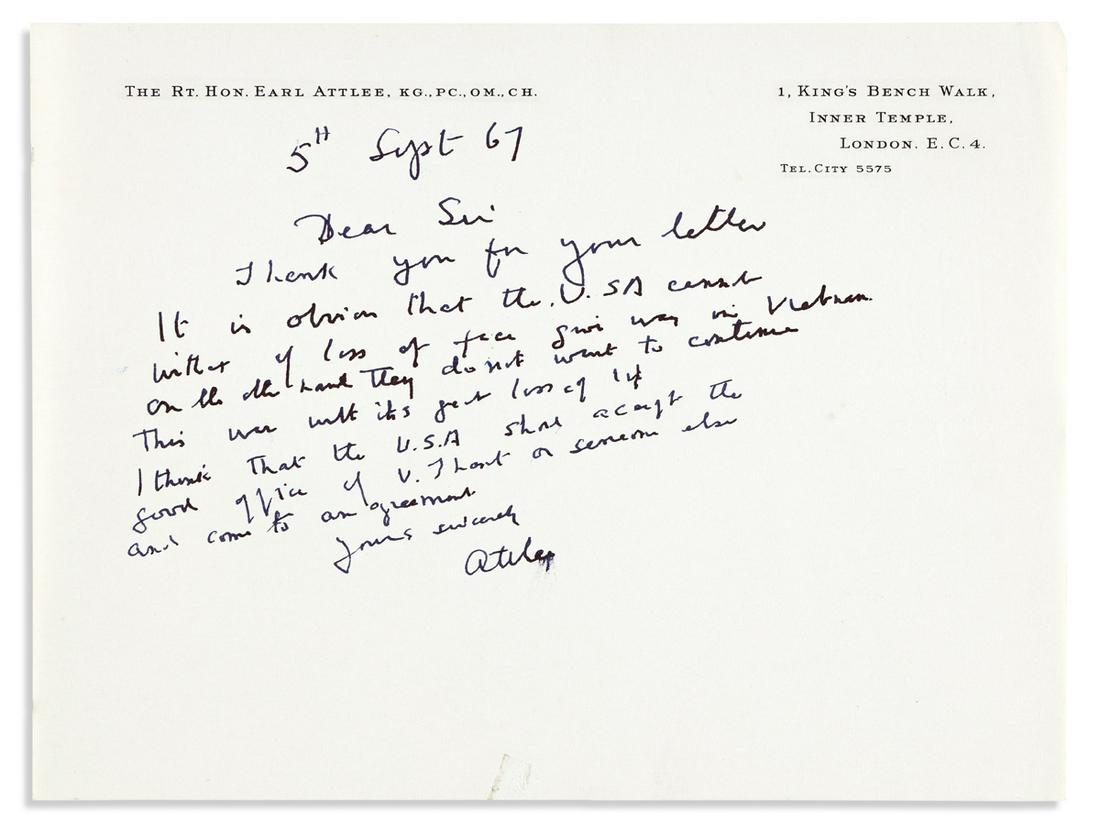 THE RT. HON. EARL ATTLEE, KG., PC., OM., CH.
1, KING'S BENCH WALK,
INNER TEMPLE,
LONDON. E. C. 4.
TEL. CITY 5575
5th Sept 67
Dear Sir
Thank you for your letter
It is obvious that the U.S.A cannot
loss of face give way in Vietnam.
on the other hand They do not want to continue
This war with its great loss of life
I think that the U.S.A should accept the
good office of U. Thant or someone else
and come to an agreement
Yours sincerely
Attlee